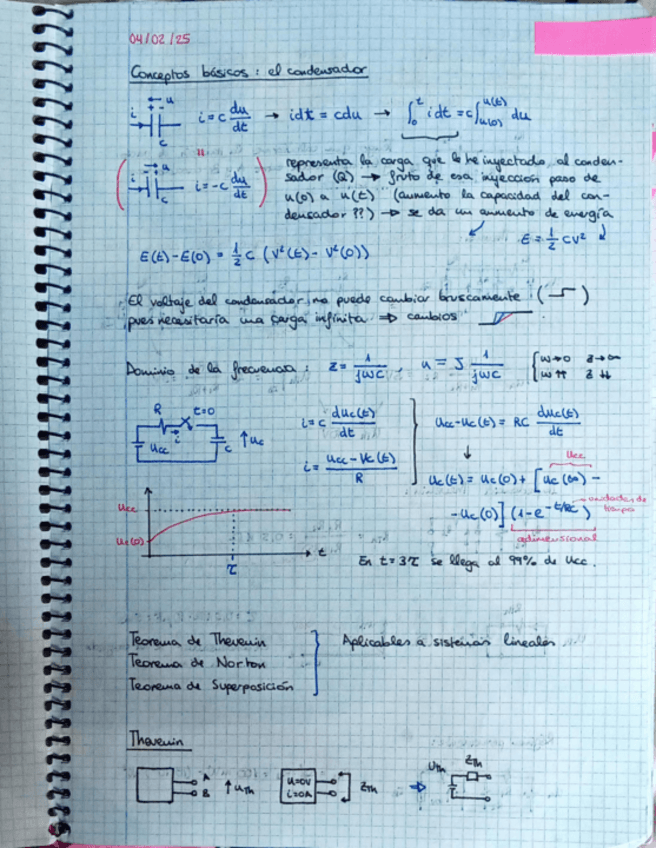 04/02/25
Conceptos básicos: el condensador
i = c du/dt → idt = cdu → ∫₀ᵗ idt = c∫u(0)u(t) du
i u c
i = -c du/dt
representa la carga que le he inyectado al conden-
sador (Q) → fruto de esa inyección paso de
u(0) a u(t) (aumento la capacidad del con-
densador ??) → se da un aumento de energía
E = 1/2 CV²
E(t) - E(0) = 1/2 C (V²(t) - V²(0))
El voltaje del condensador no puede cambiar bruscamente ( )
pues necesitaría una carga infinita ⇒ cambios
Dominio de la frecuencia: Z = 1/jωC , u = J 1/jωC { ω→0 Z→∞
ω↑↑ Z↓↓
R t=0 i Ucc c ↑Uc
i = c duc(t)/dt
i = Ucc - Vc(t)/R
Ucc - Uc(t) = RC duc(t)/dt
↓
Ucc
Uc(t) = Uc(0) + [Uc(∞) -
- Uc(0)] (1 - e^-t/RC)
unidades de tiempo
adimensional
Ucc
Uc(0)
t
τ
En t = 3τ se llega al 99% de Ucc.
Teorema de Thevenin
Teorema de Norton
Teorema de Superposición
Aplicables a sistemas lineales
Thevenin
A
B
↑UTh
U=0V
i=0A
ZTh
⇒
UTh
ZTh